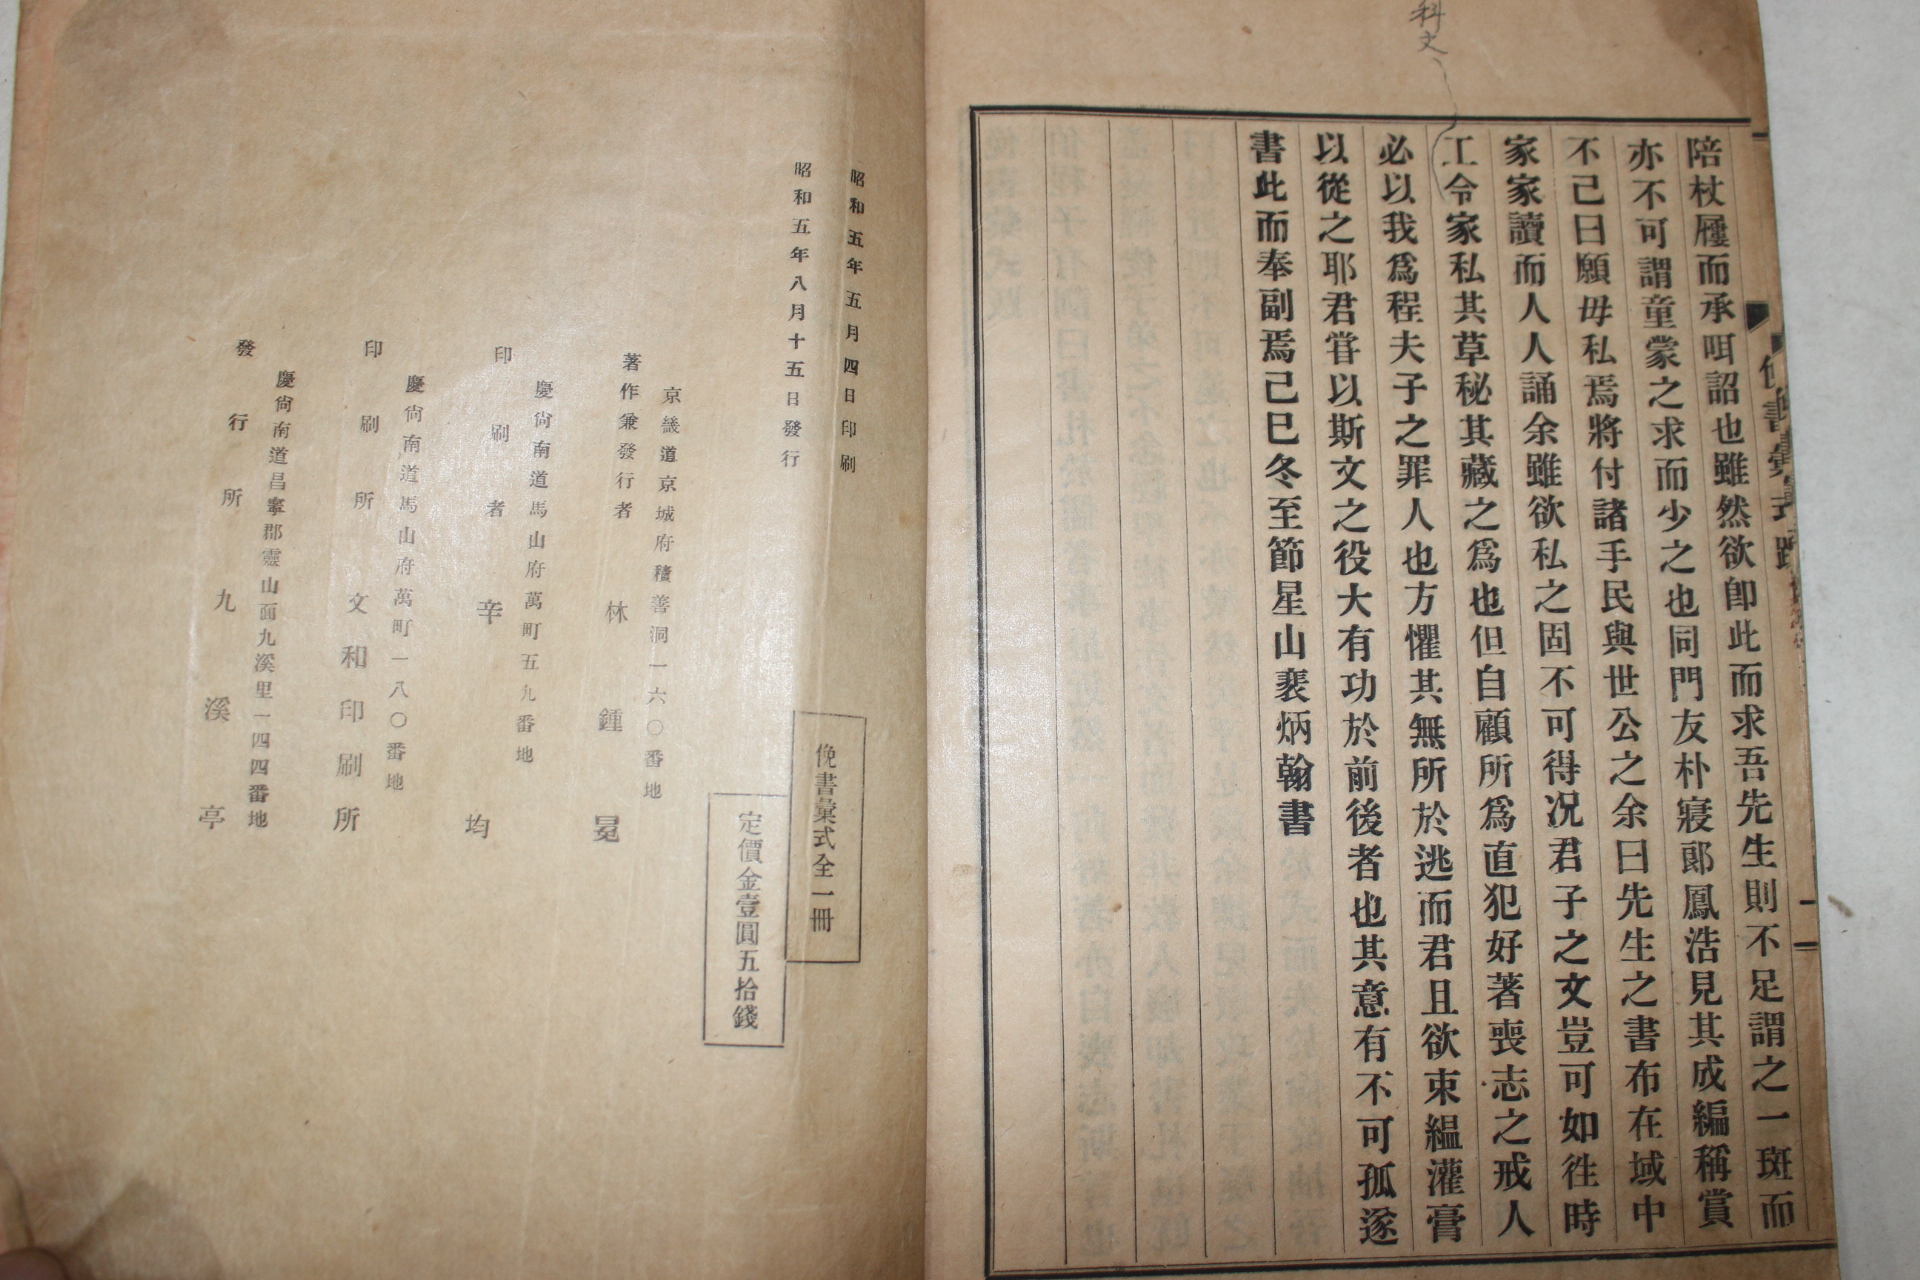 科文
俛書彙式跋
陪杖屨而承咡詔也雖然欲卽此而求吾先生則不足謂之一斑而
亦不可謂童蒙之求而少之也同門友朴寢郞鳳浩見其成編稱賞
不已曰願毋私焉將付諸手民與世公之余曰先生之書布在域中
家家讀而人人誦余雖欲私之固不可得况君子之文豈可如徃時
工令家私其草秘其藏之爲也但自顧所爲直犯好著喪志之戒人
必以我爲程夫子之罪人也方懼其無所於逃而君且欲束縕灌膏
以從之耶君甞以斯文之役大有功於前後者也其意有不可孤遂
書此而奉副焉己巳冬至節星山裵炳翰書
昭和五年五月四日印刷
昭和五年八月十五日發行
俛書彙式全一冊
定價金壹圓五拾錢
京畿道京城府積善洞一六〇番地
著作兼發行者 林鍾冕
慶尙南道馬山府萬町五九番地
印刷者 辛均
慶尙南道馬山府萬町一八〇番地
印刷所 文和印刷所
慶尙南道昌寧郡靈山面九溪里一四四番地
發行所 九溪亭